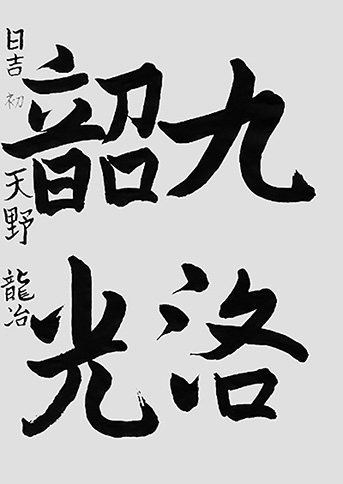 九洛
韶光
日吉 初 天野 龍冶